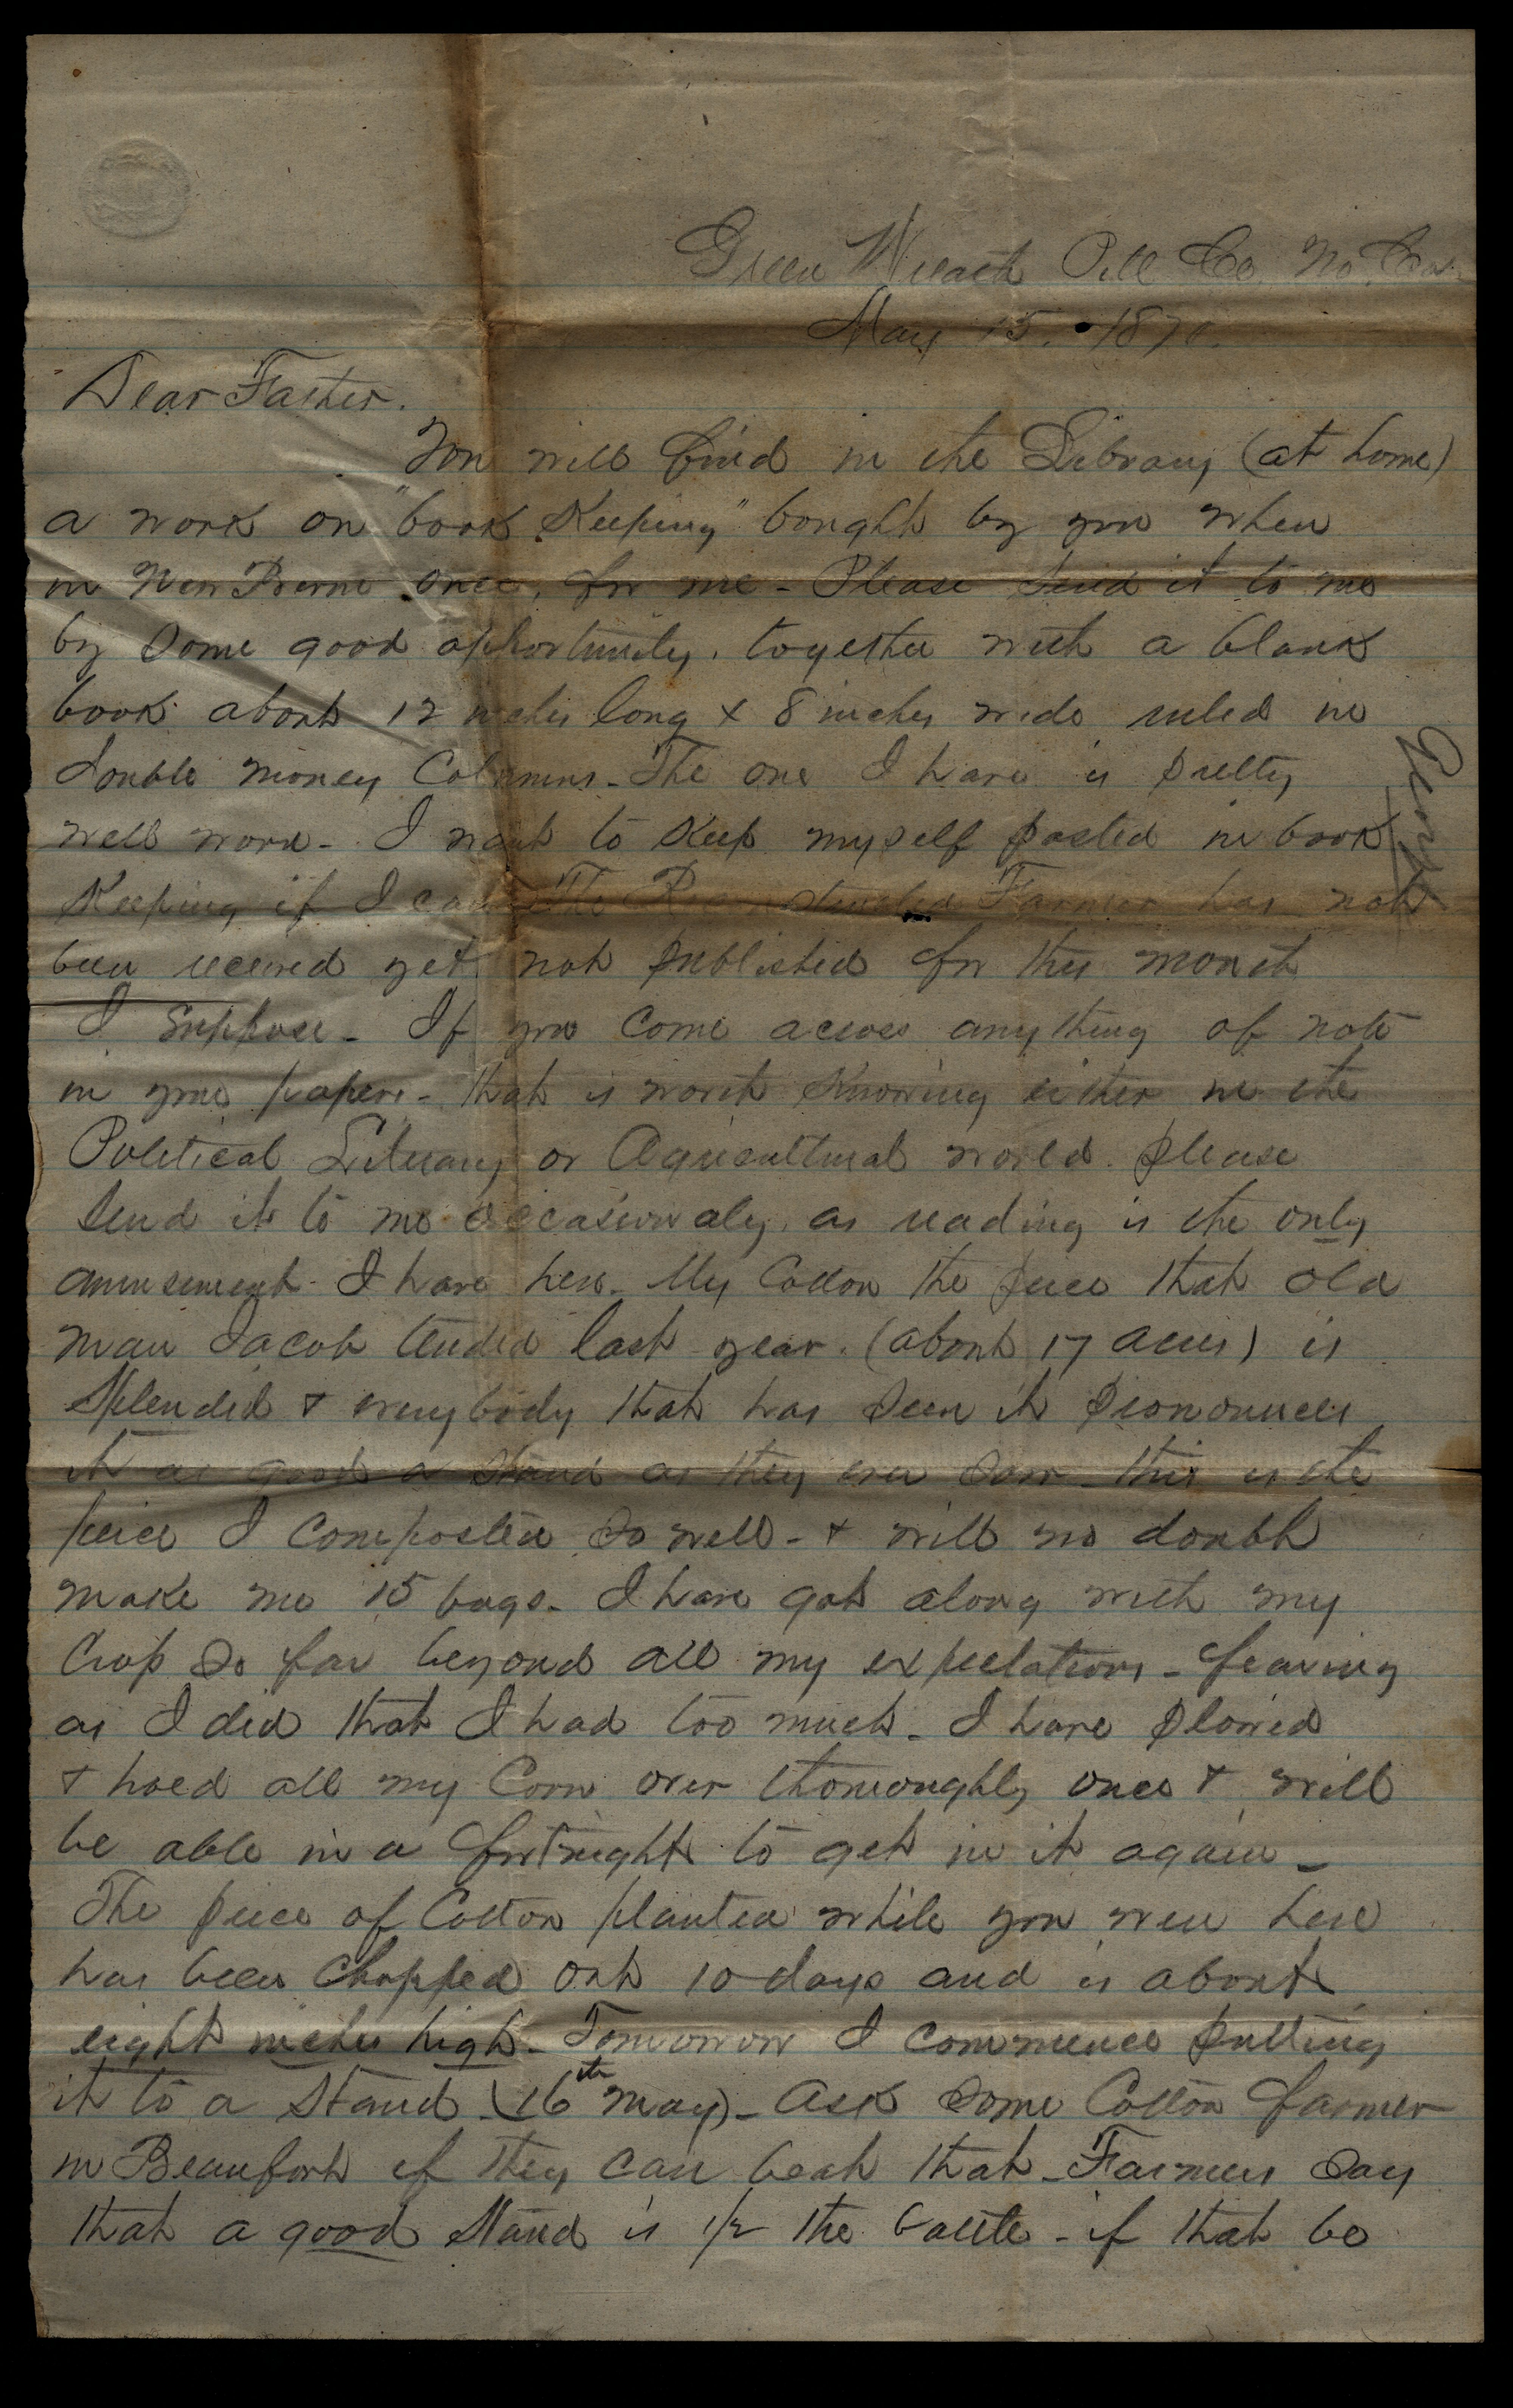 Green Wreath Pitt Co. No. Car.
May 15. 1870.
Dear Father.
You will find in the Library (at home)
a work on "book Keeping" bought by you when
in New Berne once, for me - Please send it to me
by some good opportunity, together with a blank
book about 12 inches long & 8 inches wide ruled in
double money Columns - The one I have is pretty
well worn - I want to Keep myself posted in book
Keeping if I can The Reconstructed Farmer has not
been received yet not published for this month
I suppose - If you come across anything of note
in your papers - that is worth Knowing either in the
Political Literary or Agricultural world. please
send it to me occasionaly, as reading is the only
amusement I have here. My Cotton the peice that old
man Jacob tended last year. (about 17 acres) is
Splendid & everybody that has seen it pronounces
it as good a stand as they ever saw - this is the
peice I composted so well - & will no doubt
make me 15 bags. I have got along with my
Crop so far beyond all my expectations - fearing
as I did that I had too much - I have plowed
& hoed all my Corn over thoroughly once & will
be able in a fortnight to get in it again -
The peice of Cotton planted while you were here
has been Chopped out 10 days and is about
eight inches high - Tomorrow I commence putting
it to a Stand - (16th May) - Ask some Cotton farmer
in Beaufort if they can beat that - Farmers say
that a good Stand is 1/2 the battle - if that be